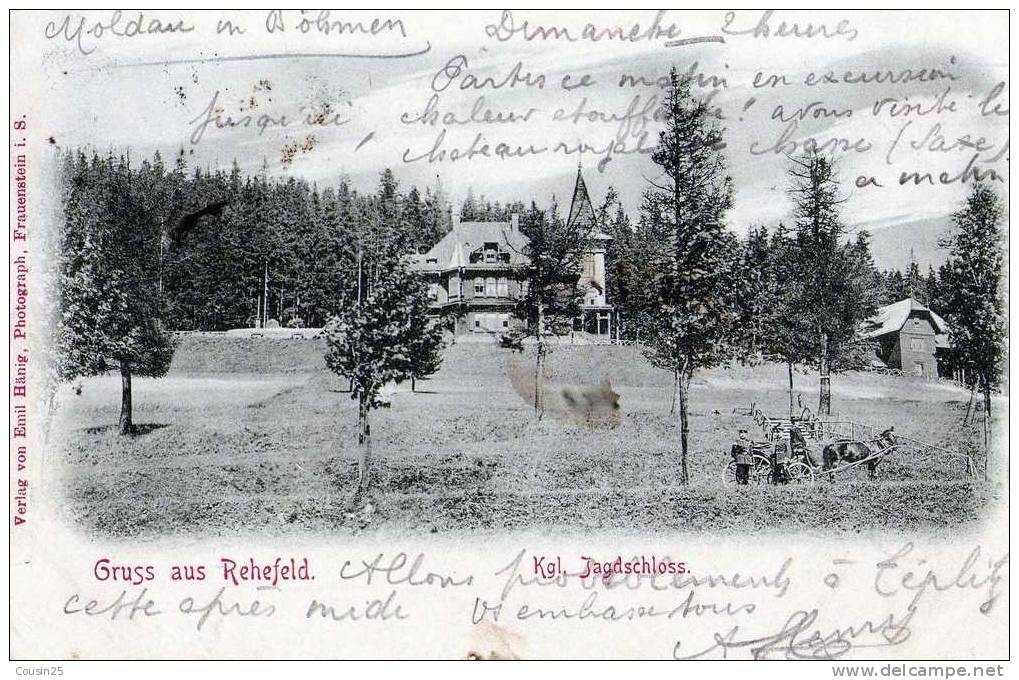 Moldau in Böhmen Dimanche 2 heures
Partis ce matin en excursion
jusqu'ici chaleur etouffante! avons visité le
chateau royal de chasse (Saxe)
ce matin
Verlag von Emil Hänig, Photograph, Frauenstein i. S.
Gruss aus Rehefeld. Kgl. Jagdschloss.
Allons probablement à Téplitz
cette après midi Vs embasse tous
Henry
Cousin25
www.delcampe.net